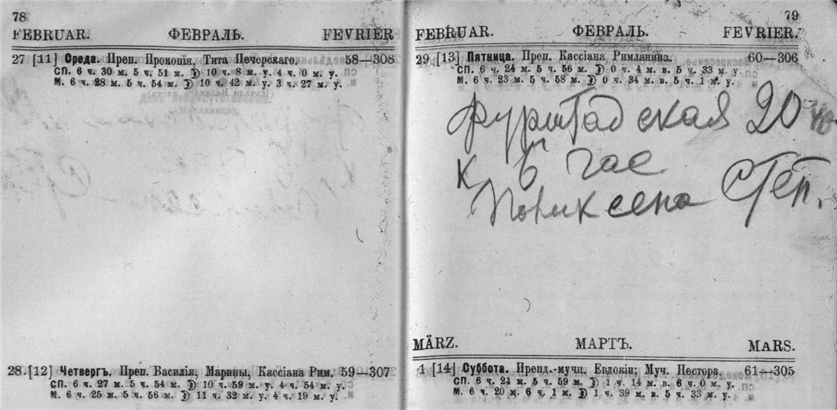 78
FEBRUAR. ФЕВРАЛЬ. FEVRIER
27 [11] Среда. Преп. Прокопія, Тита Печерскаго. 58—308
СП. 6 ч. 30 м. 5 ч. 51 м. ☽ 10 ч. 8 м. у. 4 ч. 0 м. у.
М. 6 ч. 28 м. 5 ч. 54 м. ☽ 10 ч. 42 м. у. 3 ч. 27 м. у.
28.[12] Четвергъ. Преп. Василія, Марины, Кассіана Рим. 59—307
СП. 6 ч. 27 м. 5 ч. 54 м. ☽ 10 ч. 59 м. у. 4 ч. 54 м. у.
М. 6 ч. 25 м. 5 ч. 56 м. ☽ 11 ч. 32 м. у. 4 ч. 19 м. у.
79
FEBRUAR. ФЕВРАЛЬ. FEVRIER.
29 [13] Пятница. Преп. Кассіана Римлянина. 60—306
СП. 6 ч. 24 м. 5 ч. 56 м. ☽ 0 ч. 4 м. в. 5 ч. 33 м. у.
М. 6 ч. 23 м. 5 ч. 58 м. ☽ 0 ч. 34 м. в. 5 ч. 1 м. у.
Фурштадская 20
к 6 час
Поликсена Степ.
MÄRZ. МАРТЪ. MARS.
1 [14] Суббота. Препд.-мучц. Евдокіи; Муч. Нестора. 61—305
СП. 6 ч. 21 м. 5 ч. 59 м. ☽ 1 ч. 14 м. в. 6 ч. 0 м. у.
М. 6 ч. 20 м. 6 ч. 1 м. ☽ 1 ч. 39 м. в. 5 ч. 33 м. у.